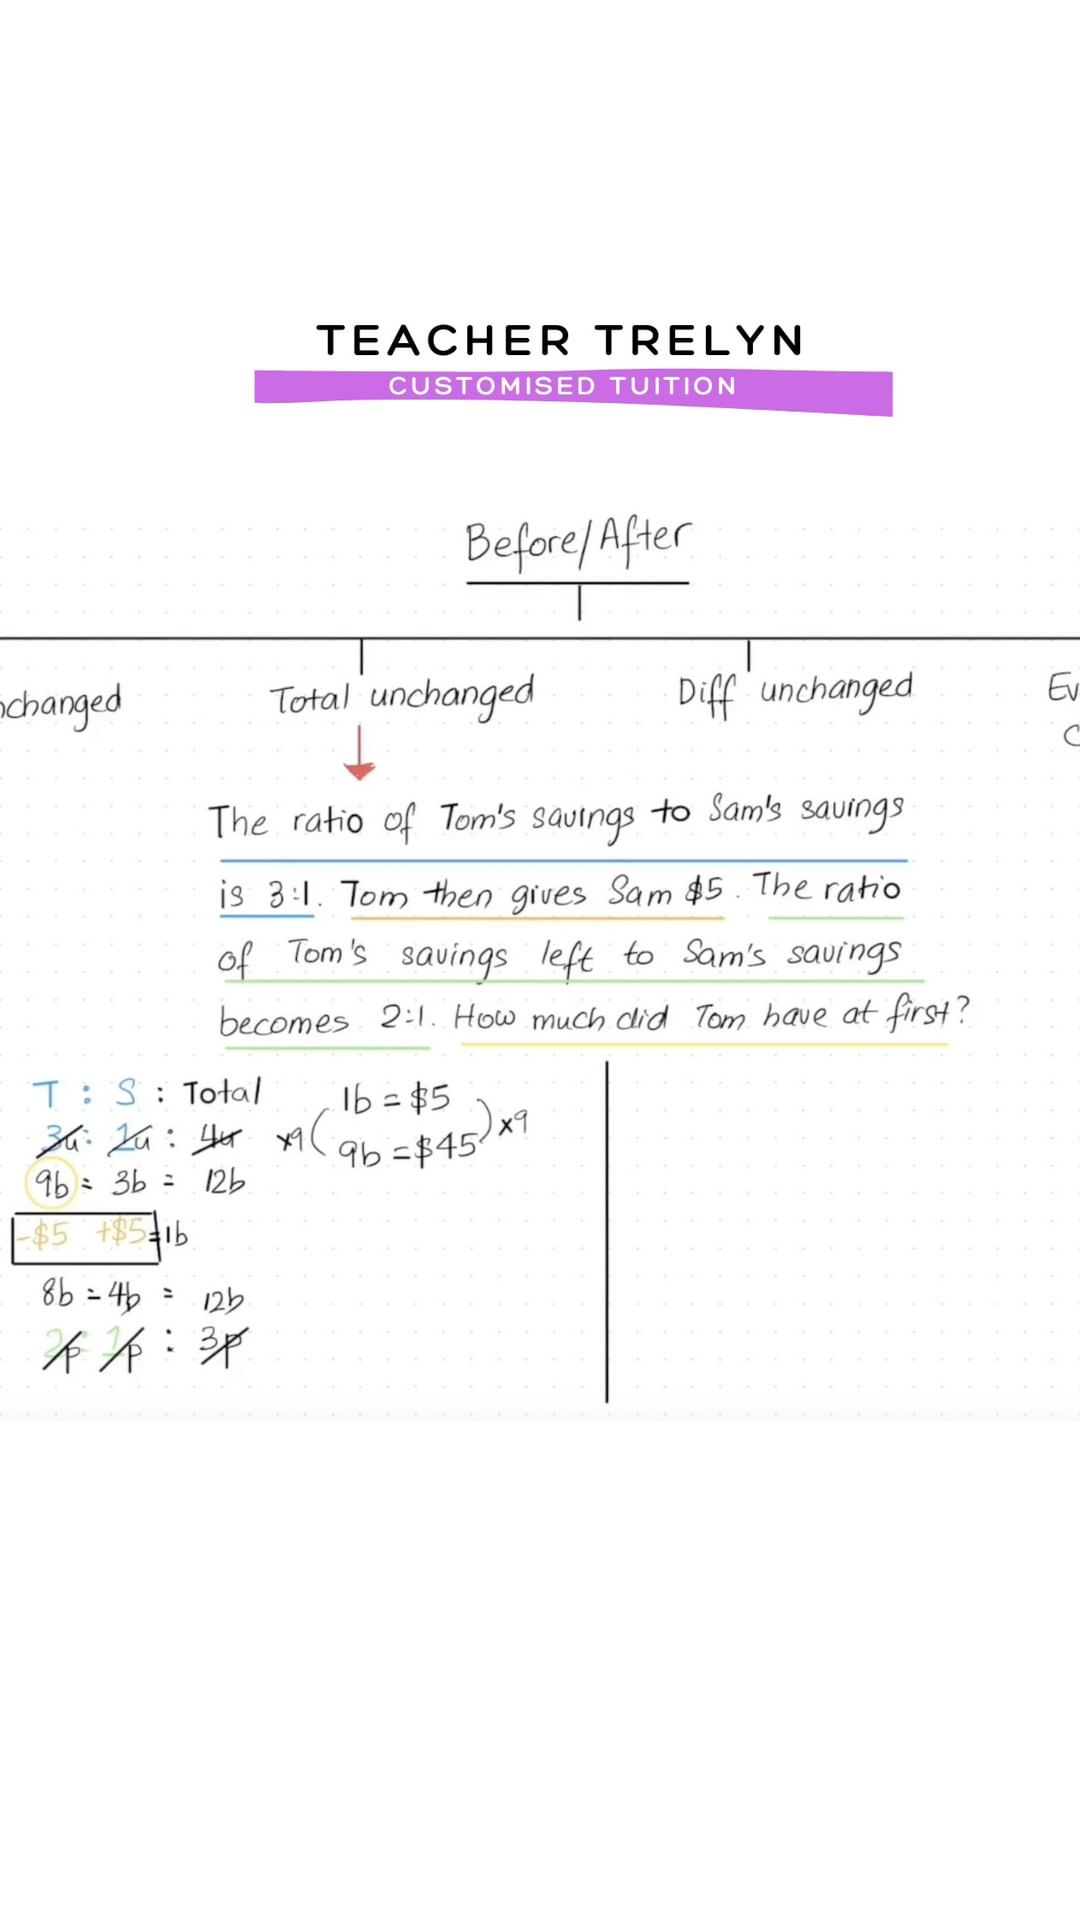 TEACHER TRELYN
CUSTOMISED TUITION
Before/After
nchanged
Total unchanged
Diff unchanged
Ev
C
The ratio of Tom's savings to Sam's savings
is 3:1. Tom then gives Sam $5. The ratio
of Tom's savings left to Sam's savings
becomes 2:1. How much did Tom have at first?
T : S : Total
3u: 1u : 4u
9b = 3b = 12b
-$5 +$5=1b
8b = 4b = 12b
2p 1p : 3p
1b = $5
x9 ( ) x9
9b = $45